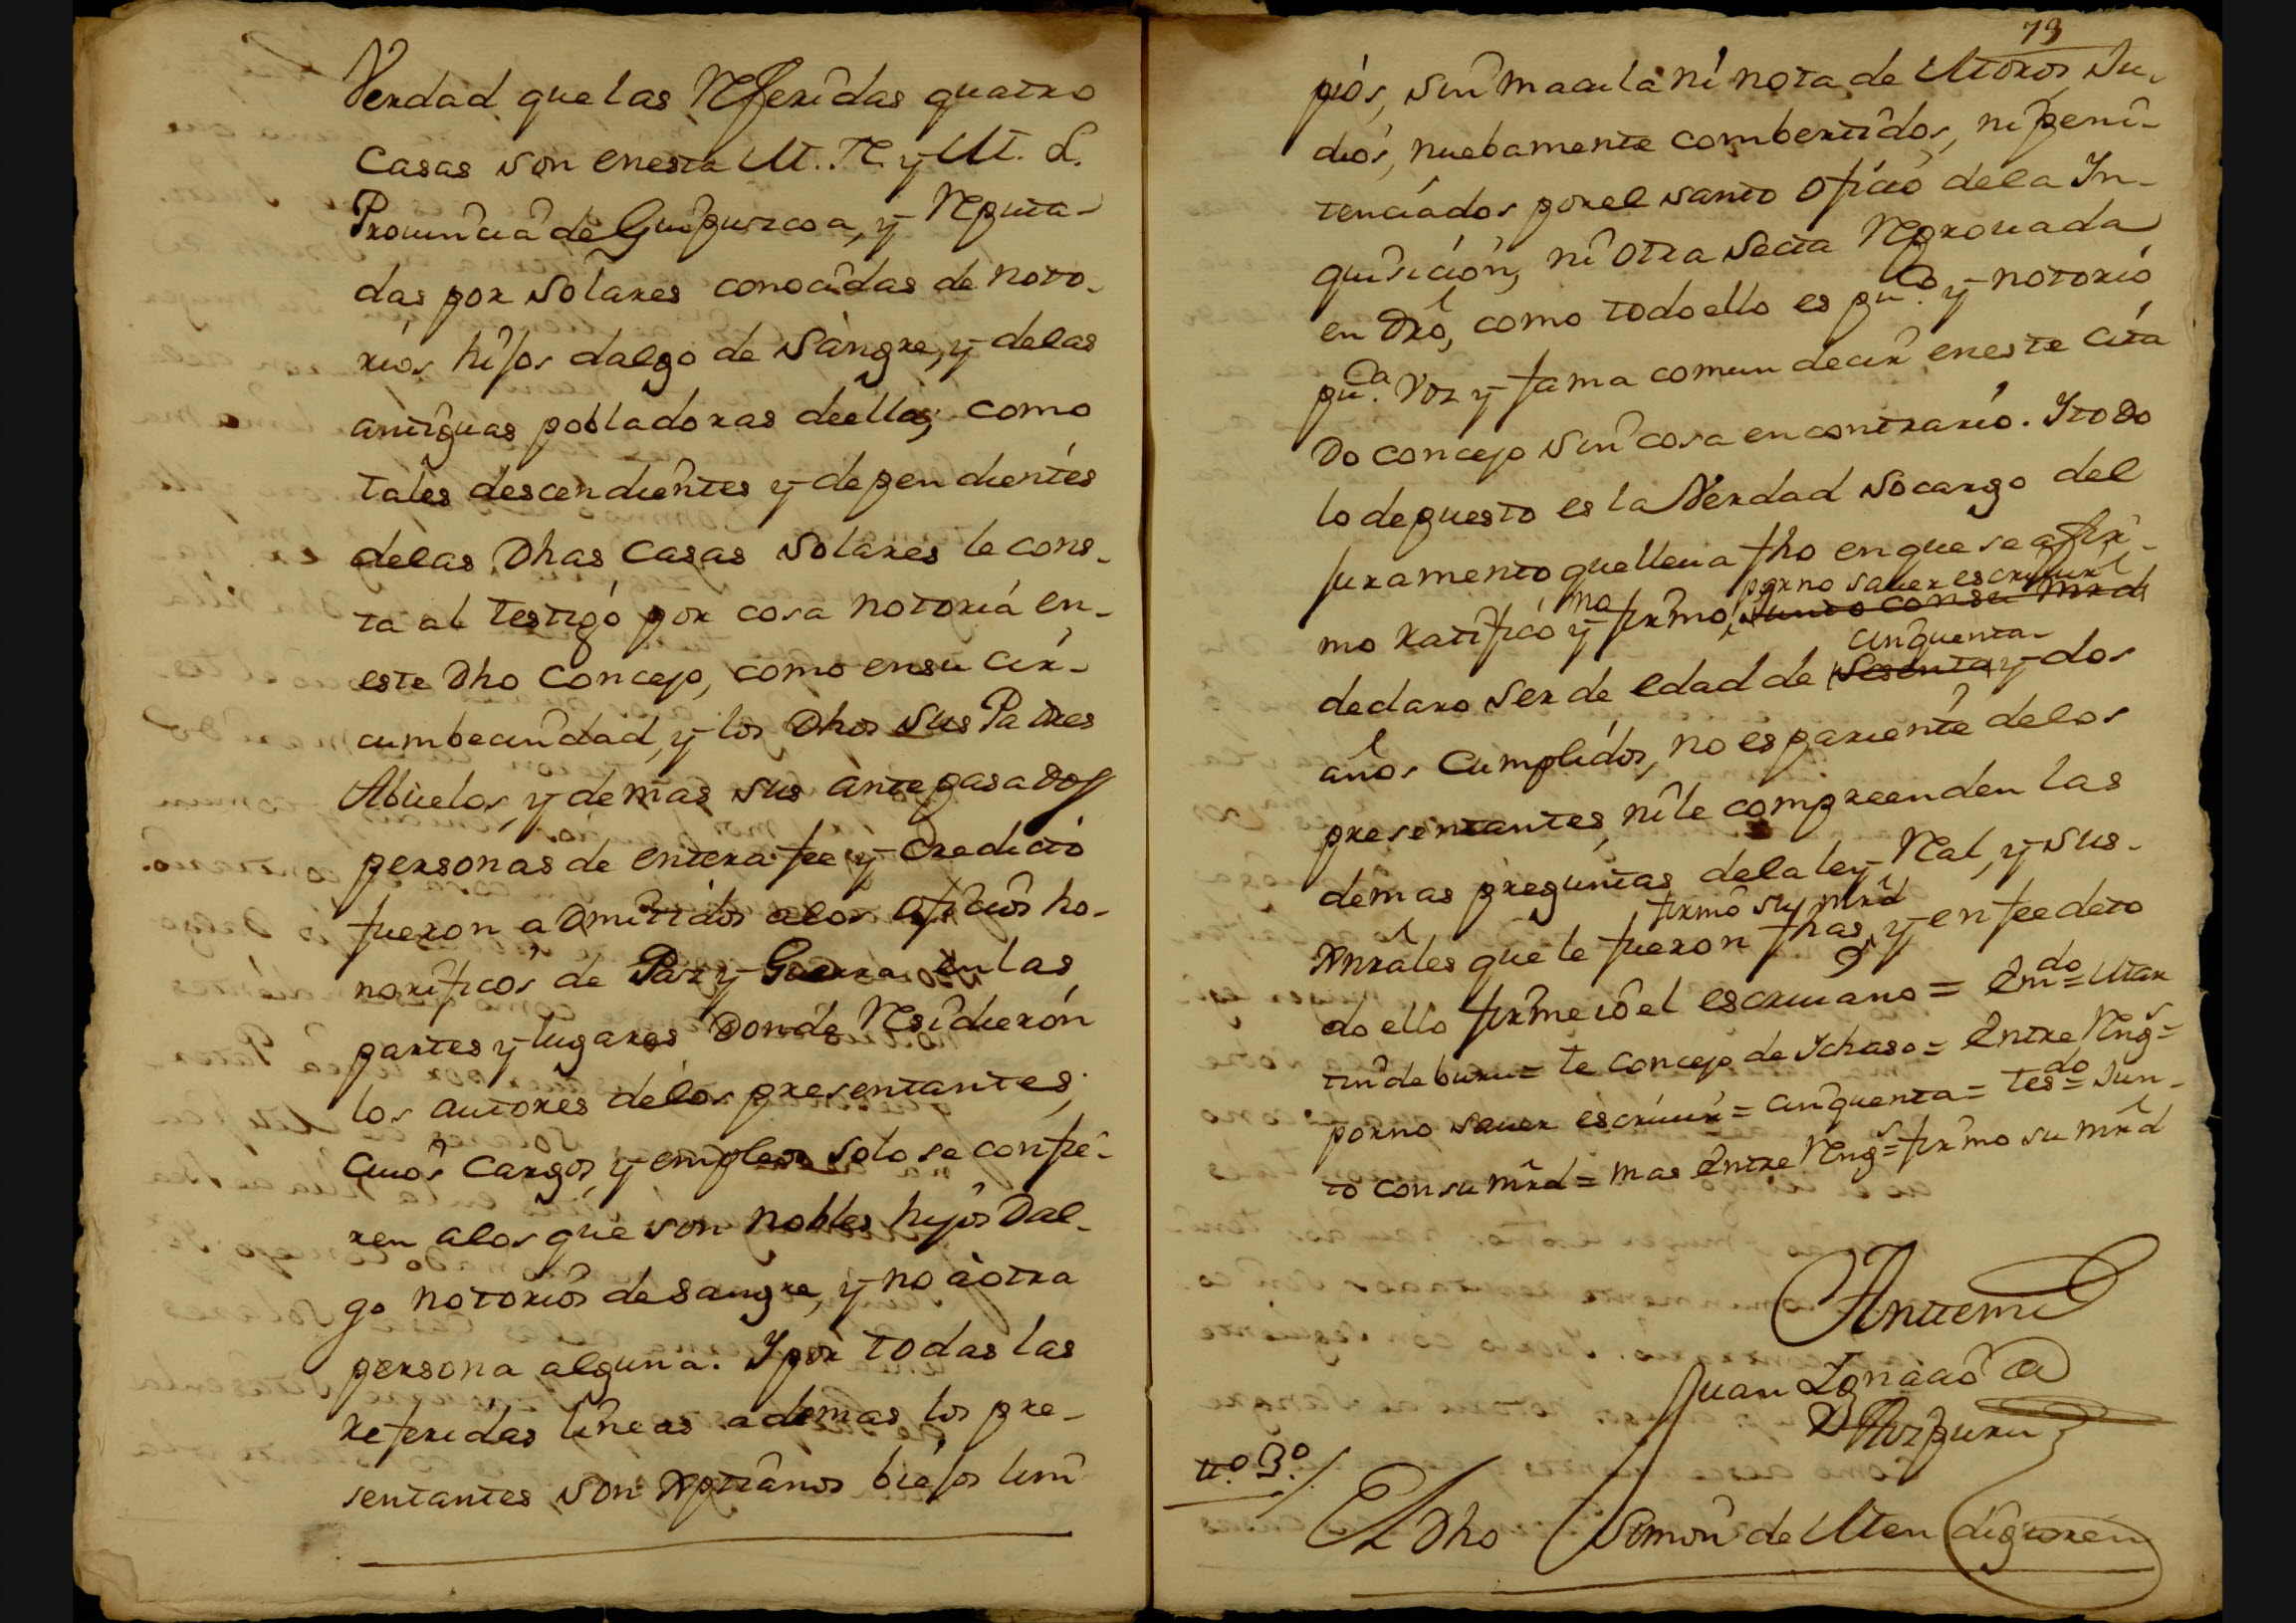 Verdad que las Referidas quatro
Casas son enesta M. N. y M. L.
Prouincia de Guipuzcoa, y Reputa-
das por Solares conocidas de noto-
rios hijos dalgo de Sangre, y delas
antiguas pobladoras deella; como
tales descendientes y dependientes
delas Dhas Casas Solares le cons-
ta al testigo por cosa notoria en-
este Dho Concejo, como ensu cir-
cumbecindad, y los Dhos sus Padres
Abuelos, y demas sus antepasados
personas de entera fee y Credicto
fueron admitidos alos oficios ho-
norificos de Paz y Guerra en las
partes y lugares Donde Residieron
los autores delos presentantes,
Cuios Cargos, y empleos solo se confie-
ren alos que son nobles hijos Dal-
go notorios desangre, y no àotra
persona alguna. Y por todas las
referidas lineas ademas los pre-
sentantes son Xptianos biejos lim
73
pios, sin macula ni nota de Moros, Ju-
dios, nuebamente combertidos, ni peni-
tenciados porel santo oficio dela In-
quisicion, ni otra Secta Reprouada
en Dro, como todoello es puco. y notorio
puca. voz y fama comun decir eneste cita
Do concejo sin cosa encontrario. Y todo
lo depuesto es la Verdad socargo del
juramento quelleua fho enque se afir-
por no sauer escriuir
mo ratificó y no firmo, junto con su mrd
cinquenta
declaro ser de edad de sesenta y dos
años Cumplidos, no es pariente delos
presentantes, ni le compreenden las
demas preguntas dela ley Real, y sus-
firmo su mrd
Gnrales que le fueron fhas, y enfeedeto
do ello firmeio el escriuano = Emdo = Mar
tin deburu = te concejo de Ychaso = Entre Rengs =
porno sauer escriuir = cinquenta = tesdo = Jun-
to con su mrd = mas Entre Rengs = firmo su mrd
Antemi
Juan Ignacio de
Aizpuru
to. 3o.
El Dho Simon de Men digoren